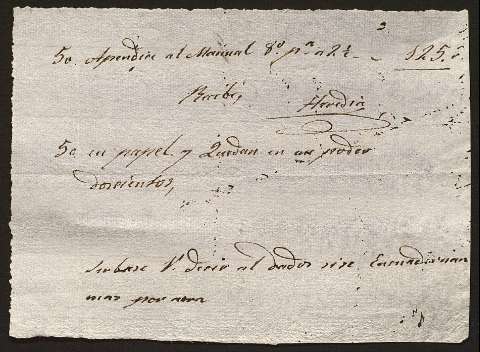 50 Apendice al Manual 8º pª a 2½ 125. r
Recibi, Heredia
50 en papel y Quedan en mi poder
doscientos,
Sirbase V. decir al dador si se Encuadernan
mas por aora